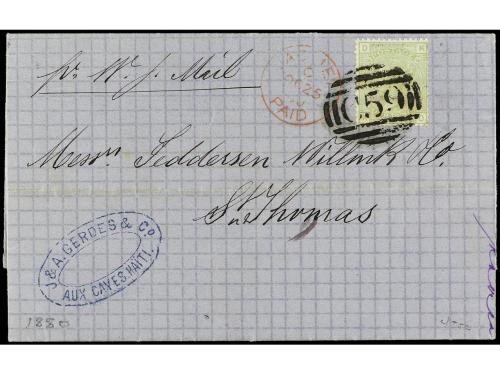 pr W. J. Mail
PAID
C59
Messrs Feddersen Willink & Co.
St. Thomas
J & A. GERDES & Co
AUX CAYES. HAITI.
1880